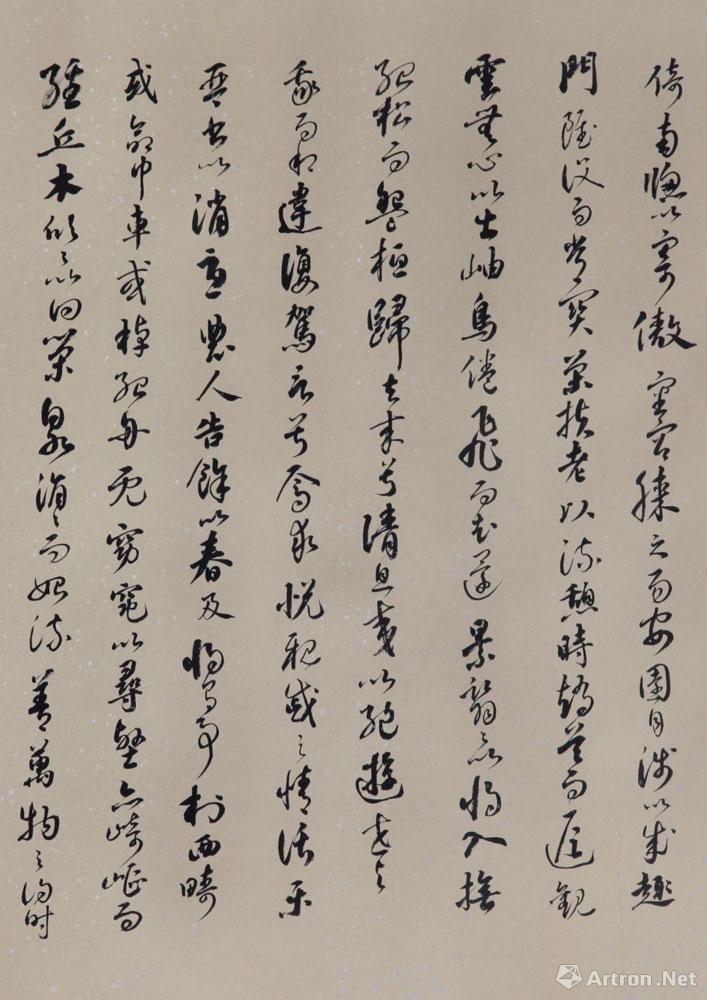 倚南窗以寄傲審容膝之而安園日涉以成趣
門雖設而常關策扶老以流憩時矯首而遐觀
雲無心以出岫鳥倦飛而知還景翳翳以將入撫
孤松而盤桓歸去來兮請息交以絕遊世與
我而相違復駕言兮焉求悅親戚之情話樂
琴書以消憂農人告餘以春及將有事於西疇
或命巾車或棹孤舟既窈窕以尋壑亦崎嶇而
經丘木欣欣以向榮泉涓涓而始流善萬物之得時
Artron.Net